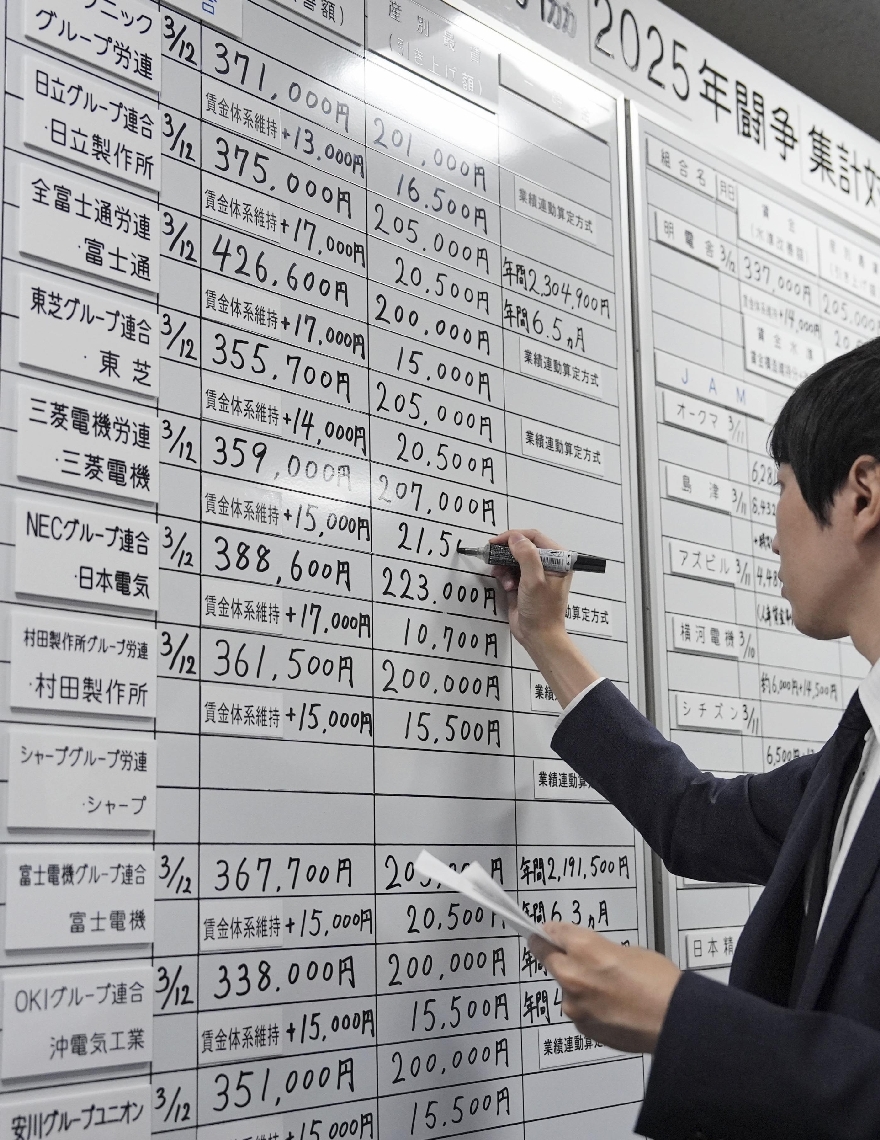 2025年闘争 集計対
ニック
グループ労連
3/12
371,000円
201,000円
賃金体系維持
+13,000円
16,500円
業績連動算定方式
日立グループ連合
・日立製作所
3/12
375,000円
205,000円
年間2,304,900円
賃金体系維持
+17,000円
20,500円
年間6.5ヵ月
全富士通労連
・富士通
3/12
426,600円
200,000円
賃金体系維持
+17,000円
15,000円
業績連動算定方式
東芝グループ連合
・東芝
3/12
355,700円
205,000円
賃金体系維持
+14,000円
20,500円
業績連動算定方式
三菱電機労連
・三菱電機
3/12
359,000円
207,000円
賃金体系維持
+15,000円
21,5
NECグループ連合
・日本電気
3/12
388,600円
223,000円
賃金体系維持
+17,000円
10,700円
算定方式
村田製作所グループ労連
・村田製作所
3/12
361,500円
200,000円
賃金体系維持
+15,000円
15,500円
業績
シャープグループ労連
・シャープ
業績連動算
富士電機グループ連合
富士電機
3/12
367,700円
年間2,191,500円
賃金体系維持
+15,000円
20,500円
6.3ヵ月
OKIグループ連合
沖電気工業
3/12
338,000円
200,000円
年間
賃金体系維持
+15,000円
15,500円
年間
安川グループユニオン
3/12
351,000円
200,000円
業績連動算
賃金体系維持
+15,000円
15,500円
組合名
月日
賃金
(水準改善額)
明電舎
3/12
337,000円
205,000
+14,000円
JAM
オークマ
3/11
島津
3/11
アズビル
3/11
横河電機
3/10
約6,000円+14,500円
シチズン
3/11
6,500円
日本精